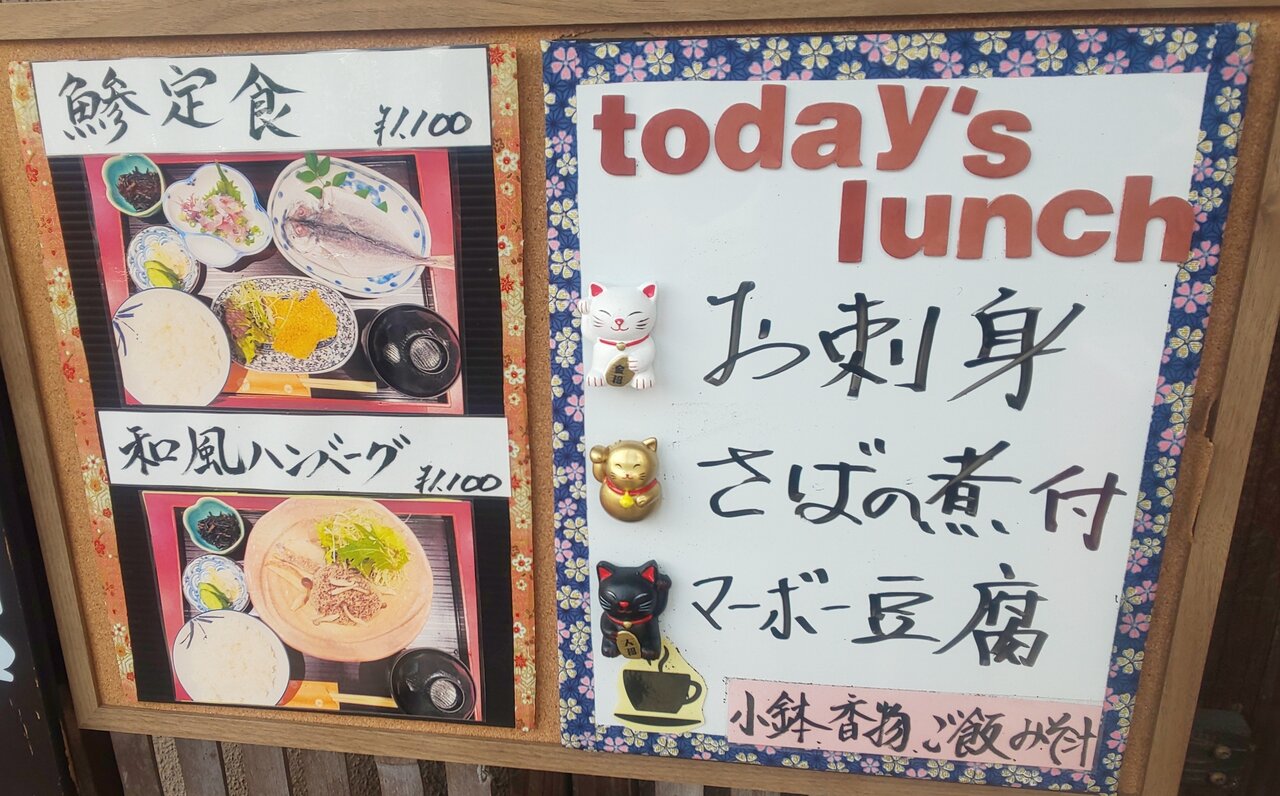 鯵定食
¥1,100
和風ハンバーグ
¥1,100
today's
lunch
お刺身
さばの煮付
マーボー豆腐
小鉢 香物 ご飯 みそ汁